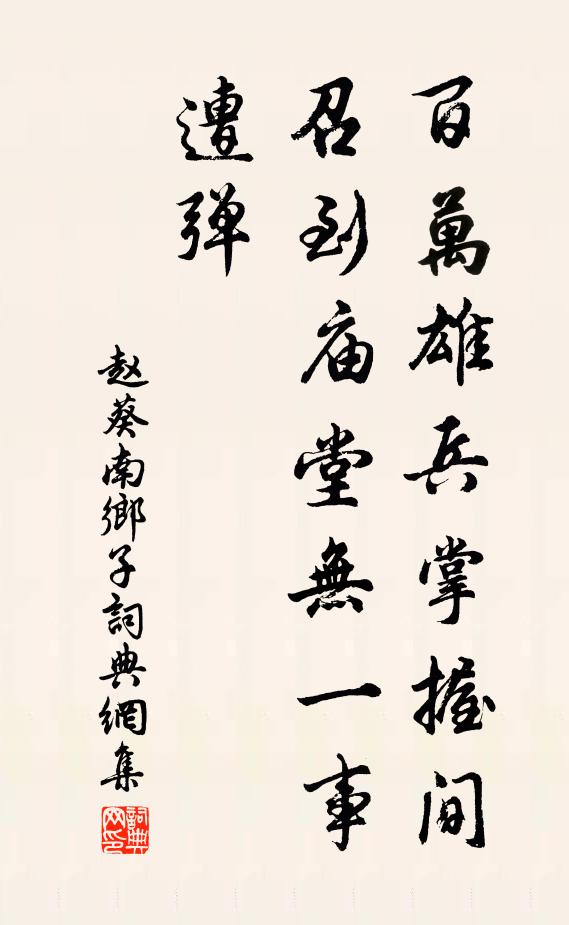 百萬雄兵掌握间
召到庙堂無一事
遭弹
赵葵南鄉子詞典網集
詞典网印